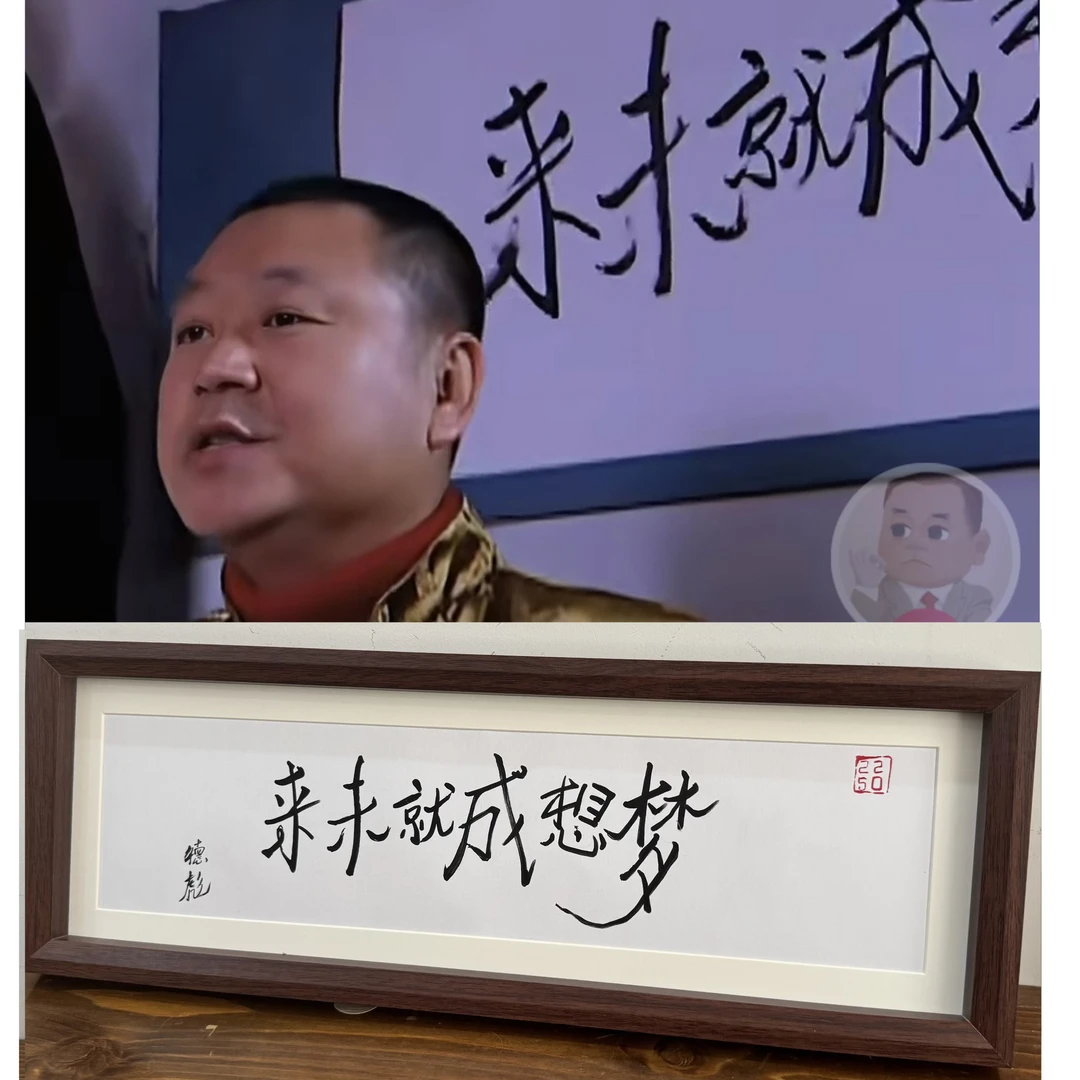 成就未来
22
50
梦想成就未来
德彪